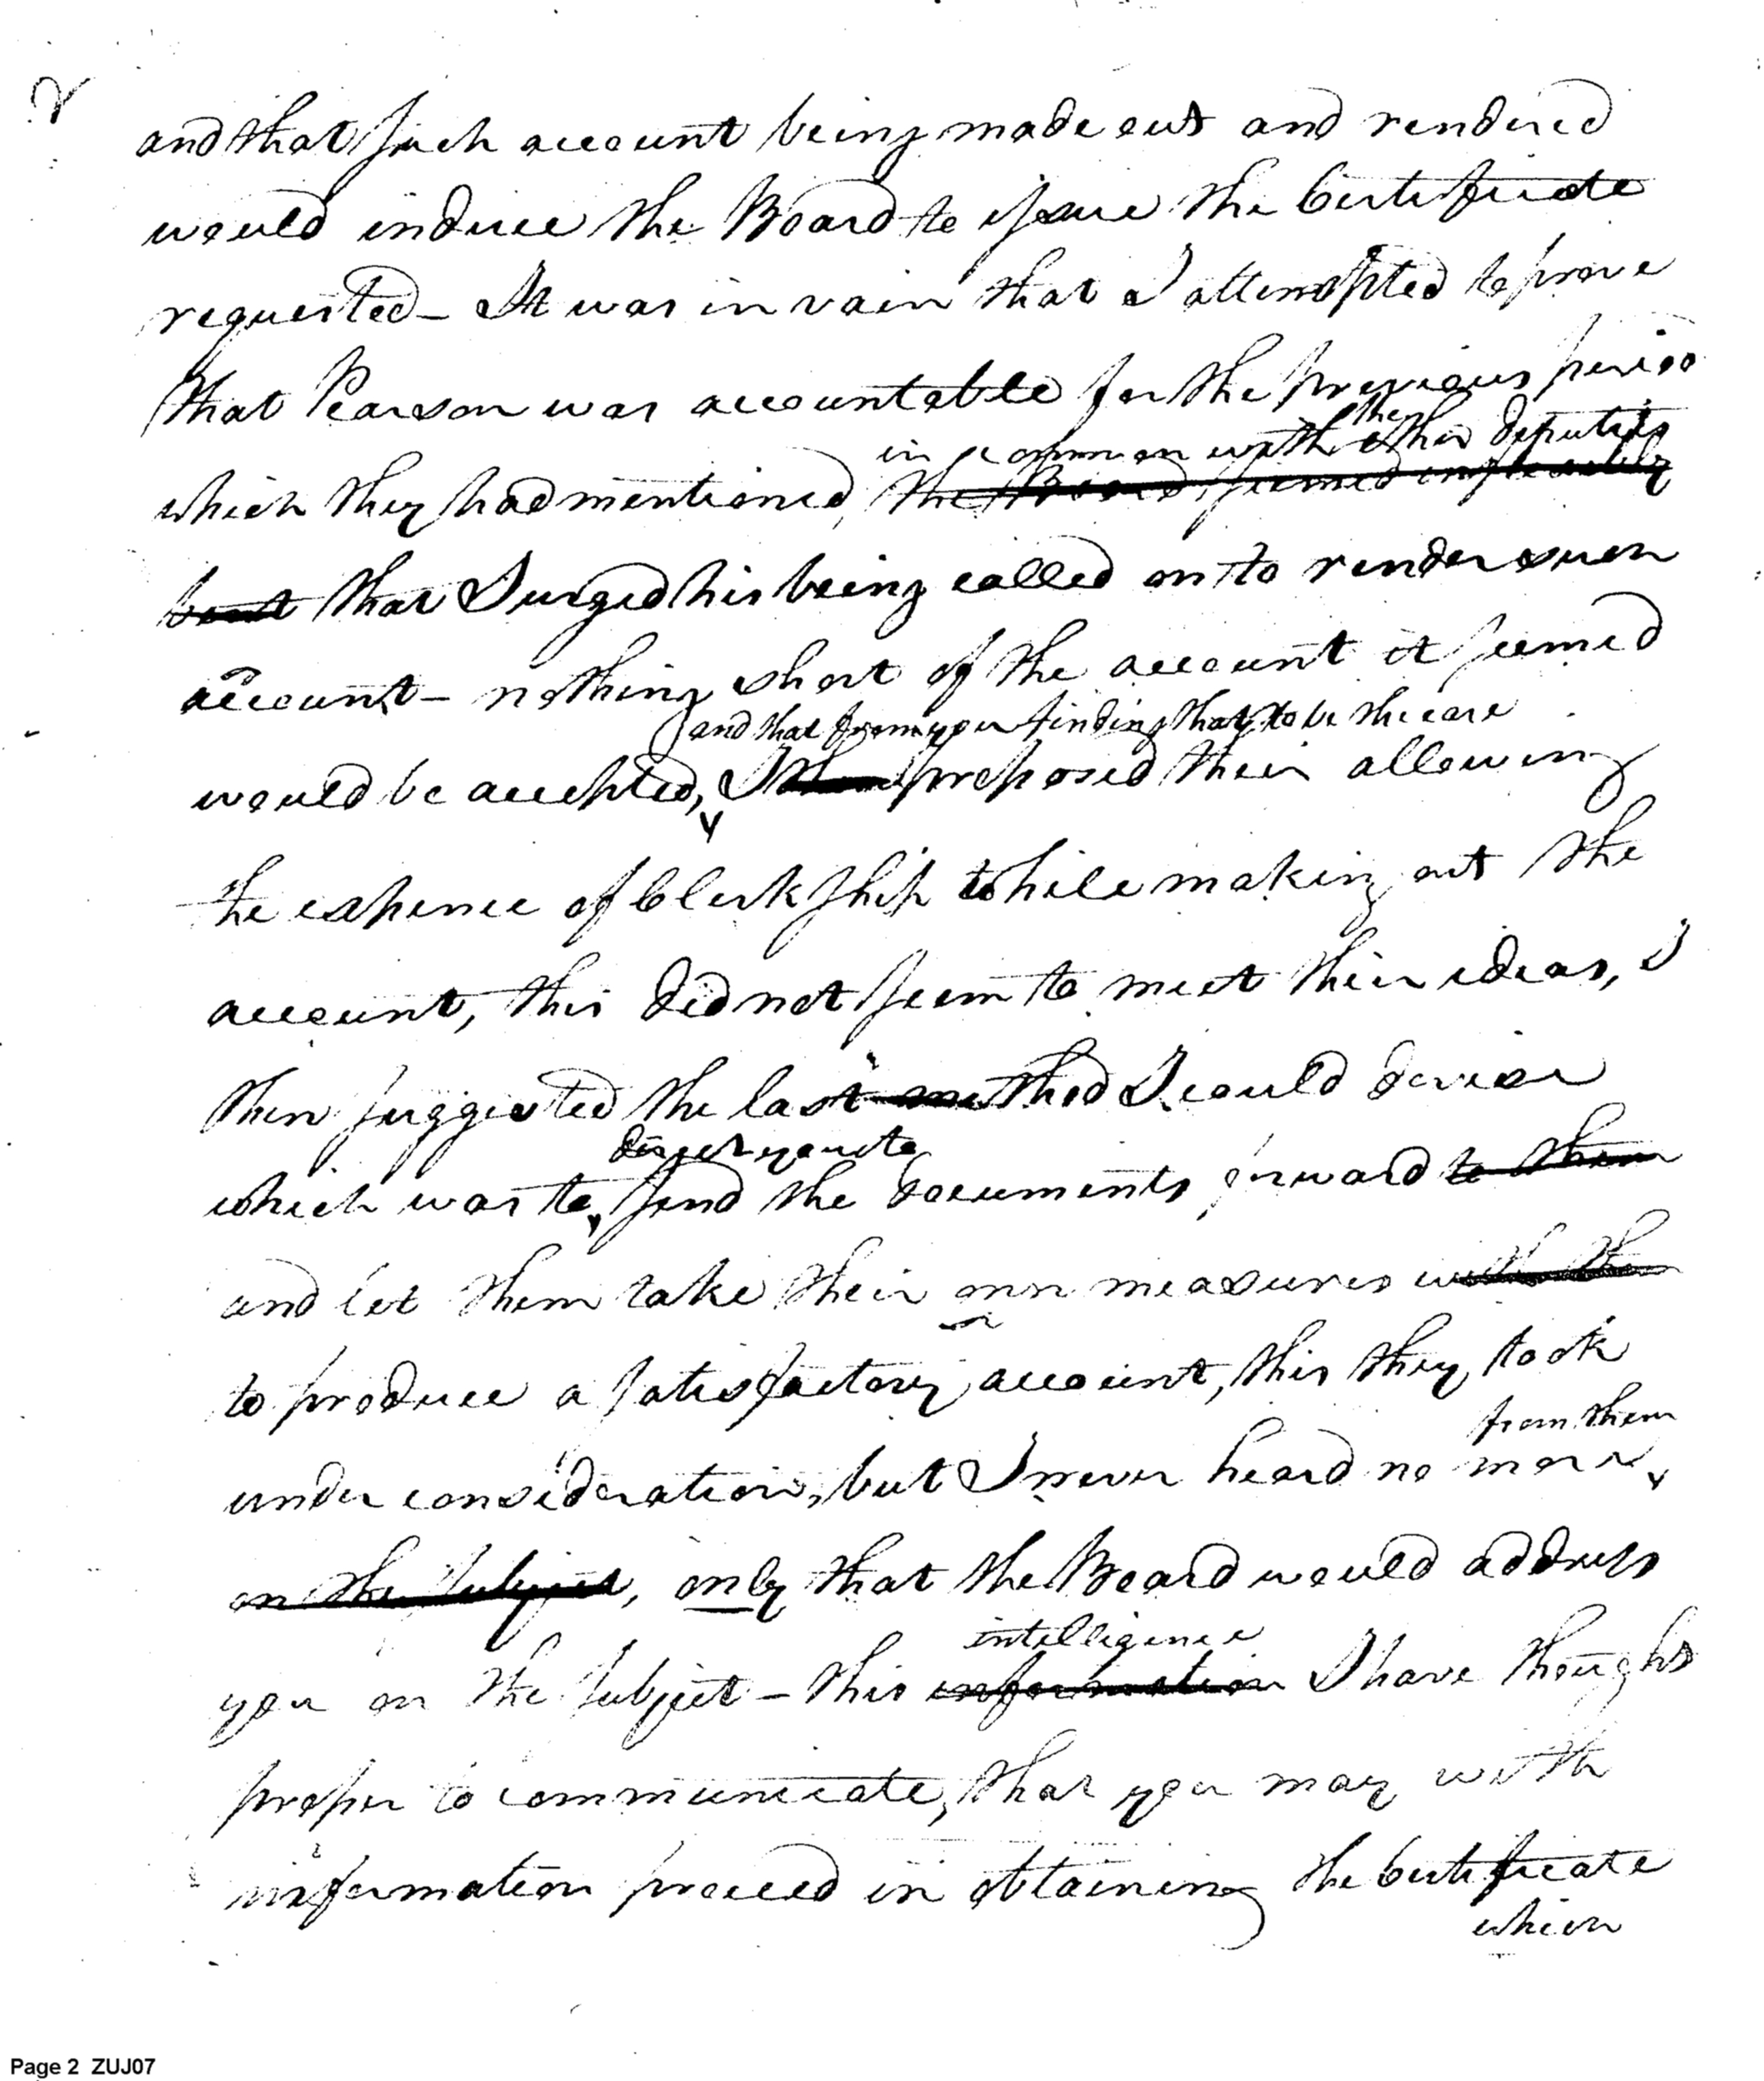 2
and that such account being made out and rendered
would induce the Board to issue the Certificate
requested – It was in vain that I attempted to prove
that Pearson was accountable for the previous period
in common with the other deputies
which they had mentioned, the Board, seemed
that I urged his being called on to render such
account – nothing short of the account it seemed
and that from your finding that to be the case
would be accepted, I proposed their allowing
the expence of Clerkship while making out the
account, this did not seem to meet their ideas, I
then suggested the last method I could devise
direct you to
which was to send the documents forward to them
and let them take their own measures with the
to produce a satisfactory account, this they took
from them
under consideration, but I never heard no more
on the subject, only that the Board would address
intelligence
you on the subject – this information I have thought
proper to communicate, that you may with
information proceed in obtaining the Certificate
which
Page 2 ZUJ07